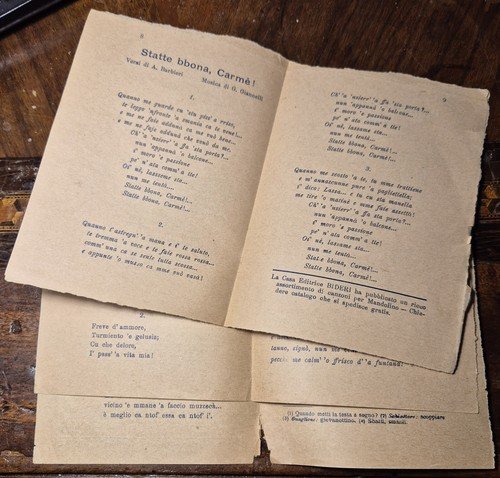 8
Statte bbona, Carmè!
Versi di A. Barbieri Musica di G. Giannelli
1.
Quanno me guarde cu 'stu pizz' a rriso,
te leppe 'nfronte 'a smania ca te vene!...
e me ne fuie addunà ca me vuò bene...
e me ne fuie addunà che tenò da me.
Ch' a 'nzierr' a ffa 'sta porta?...
nun 'appannà 'o balcone...
i' moro 'e passione
pe' n' ata comm' a tte!
Oi' né, lasseme sta...
nun me tentà...
Statte bbona, Carmè!...
Statte bbona, Carmè!
2.
Quanno t'astregn' 'a mana e i' te saluto,
te tremma 'a voce e te faie rossa rossa...
comm'una ca se sente tutta scossa...
e appunto 'o musso ca mme suò vasà!
9
Ch' a 'nzierr' a ffa 'sta porta?...
nun 'appannà 'o balcone...
i' moro 'e passione
pe' n' ata comm' a tte!
Oi' né, lassame sta...
nun me tentà...
Statte bbona, Carmè!...
Statte bbona, Carmè!...
3.
Quanno me scosto 'a te, tu mme trattiene
e m'annascunne pure 'a paglietella;
i' dico: Lassa... e tu cu sta manella
me tire 'o matiné e mme faie assettà!
Ch' a 'nzierr' a ffa sta porta?...
nun 'appannà 'o balcone...
i' moro 'e passione
pe' n' ata comm' a tte!
Oi' né, lassame sta...
nun me tentà...
Statte bbona, Carmè!...
Statte bbona, Carmè!...
La Casa Editrice BIDERI ha pubblicato un ricco
assortimento di canzoni per Mandolino — Chie-
dere catalogo che si spedisce gratis.
2.
Freve d'ammore,
Turmiento 'e gelusia;
Cu che delore,
I' pass' 'a vita mia!
tanno, signò, nun me
pecché me calm' 'o ffrisco d' 'a funtana!
vicino 'e mmane 'a faccio muzzecà...
è meglio ca ntof' essa ca ntof' i'.
(1) Quando metti la testa a segno? (2) Schiattare: scoppiare
(3) Guaglione: giovanottino. (4) Sbatti, smanii.